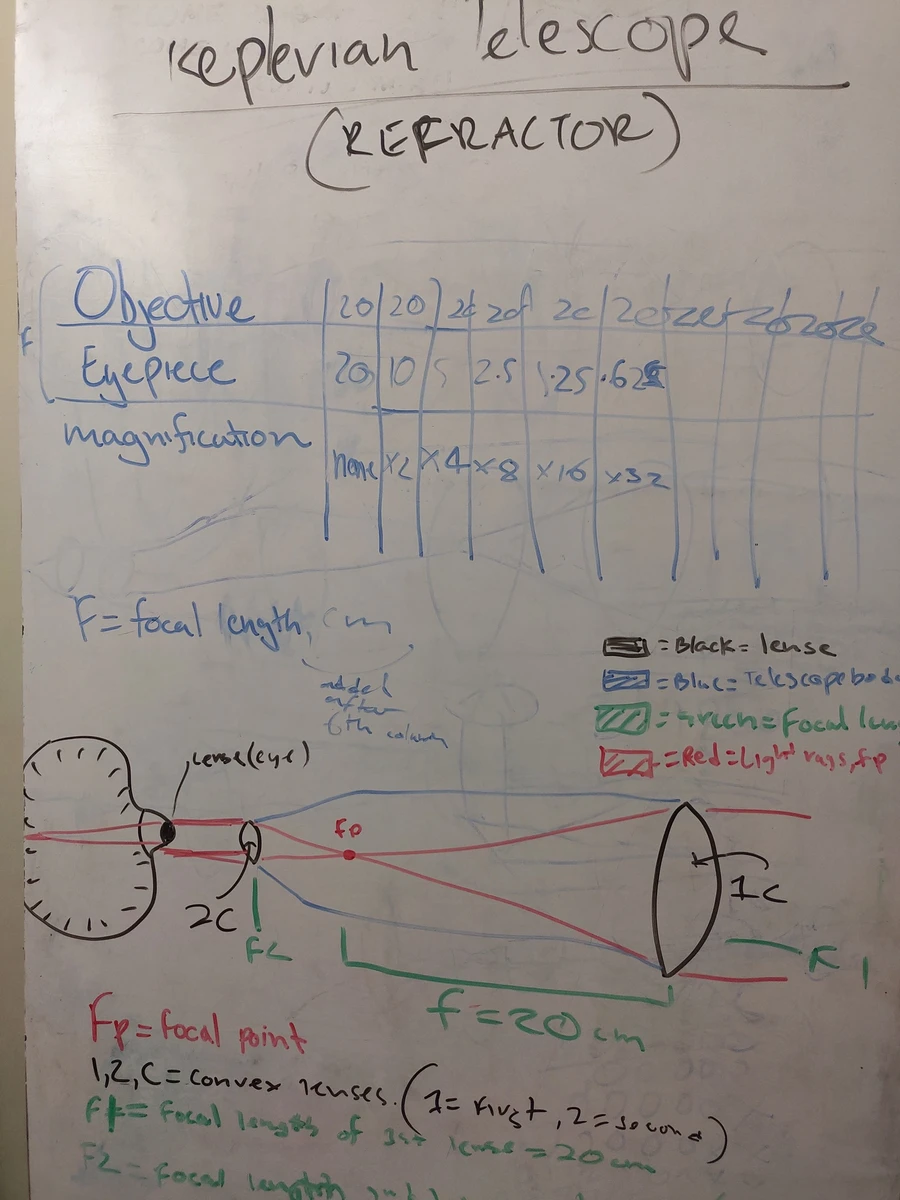 Keplerian Telescope
(REFRACTOR)
Objective 20 20 20 20 20 20 20 20 20 20
F
Eyepiece 20 10 5 2.5 1.25 .625
magnification none x2 x4 x8 x16 x32
F = focal length, cm
added after 6th column
= Black = lense
= Blue = Telescope
= Green = Focal
= Red = Light rays, fp
lense (eye)
Fp
2C
1C
F2
F1
f = 20 cm
Fp = focal point
1,2, C = convex lenses. (1 = first, 2 = second)
F1 = Focal length of 1st lense = 20 cm
F2 = focal length